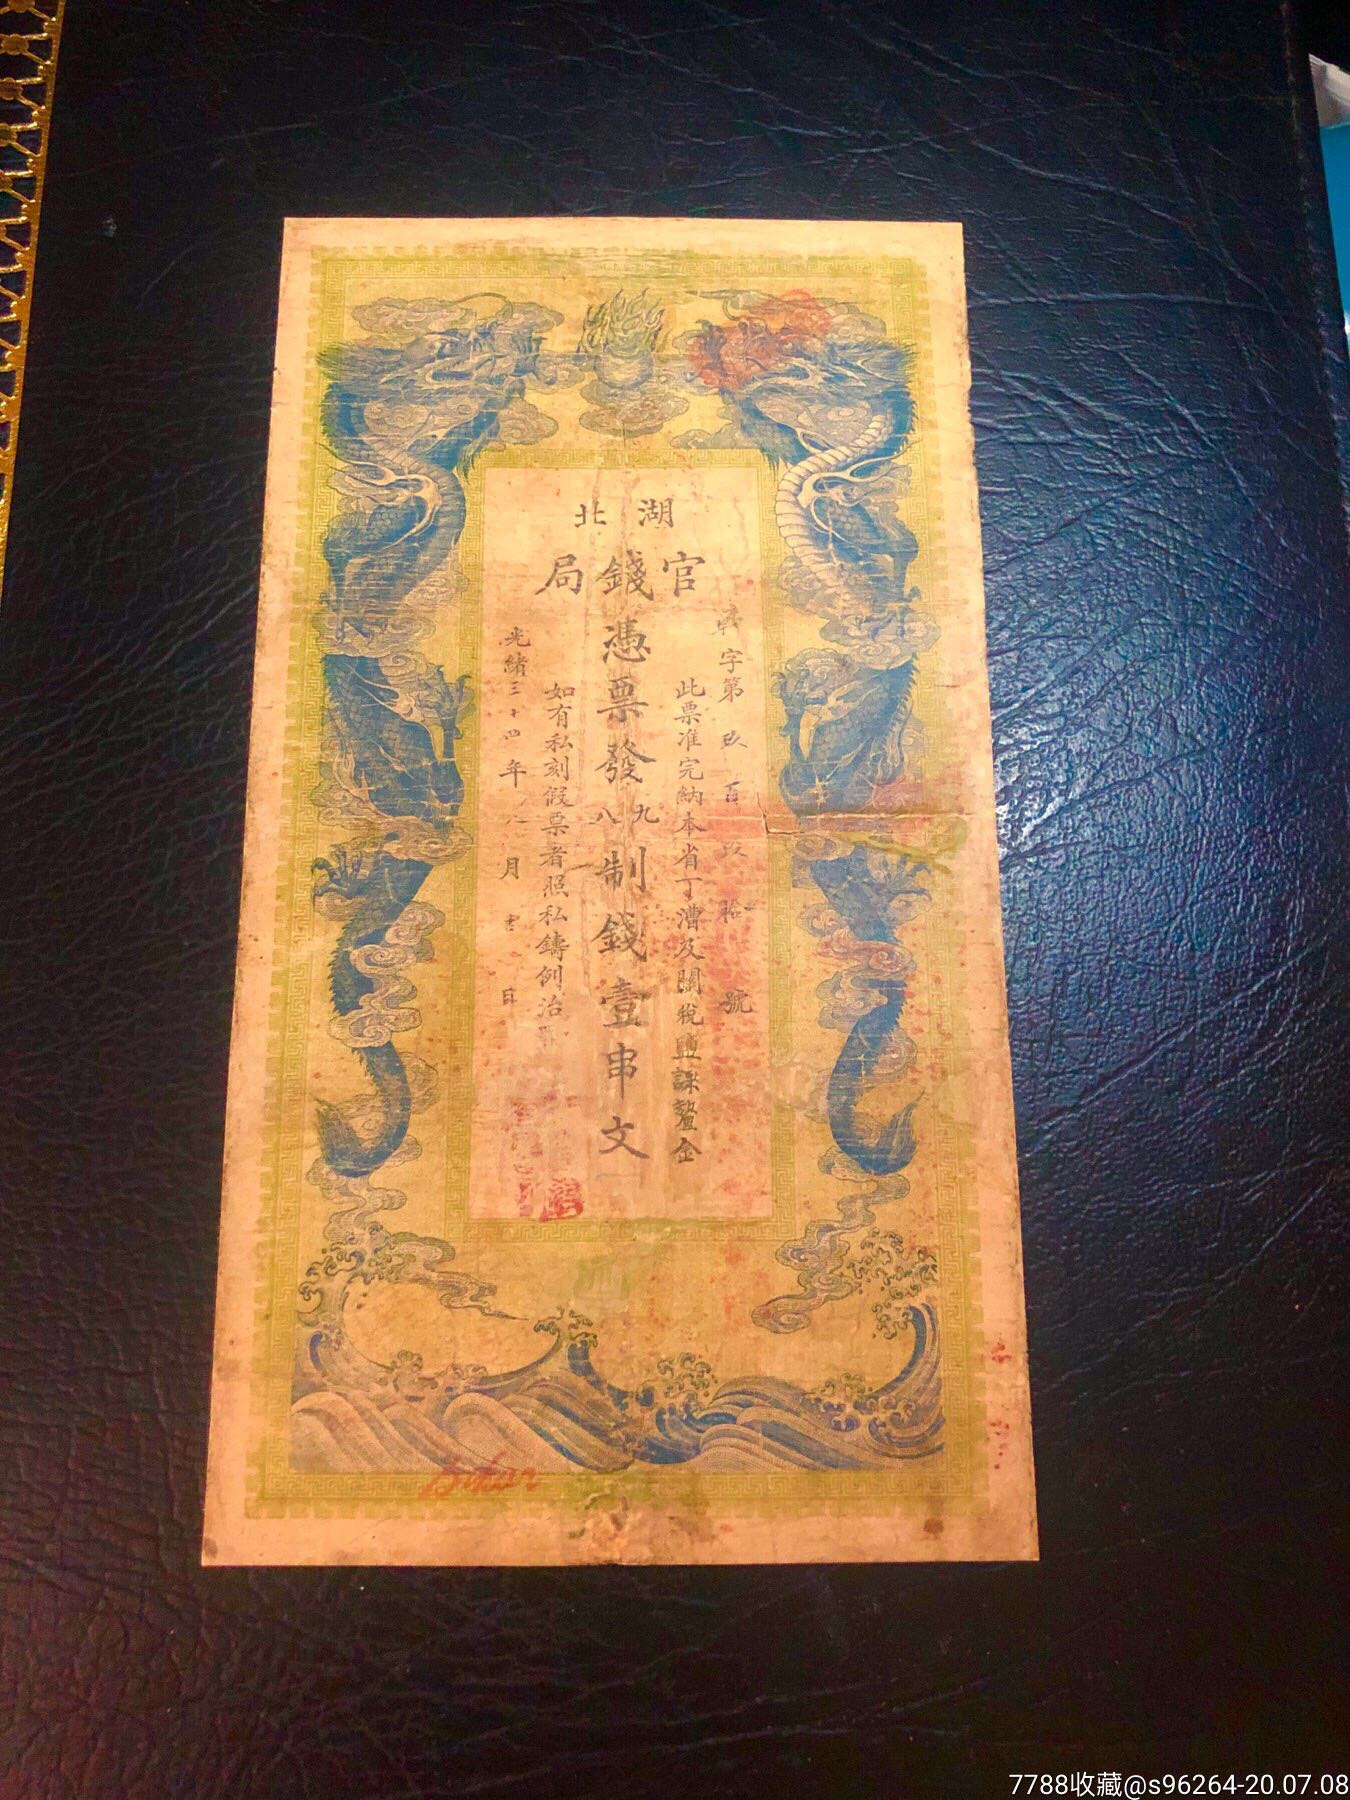 湖北
官錢局
字第玖百玖拾號
此票准完納本省丁漕及關稅鹽課釐金
憑票發九八制錢壹串文
如有私刻假票者照私鑄例治
光緒三十四年八月吉日
7788收藏@s96264-20.07.08